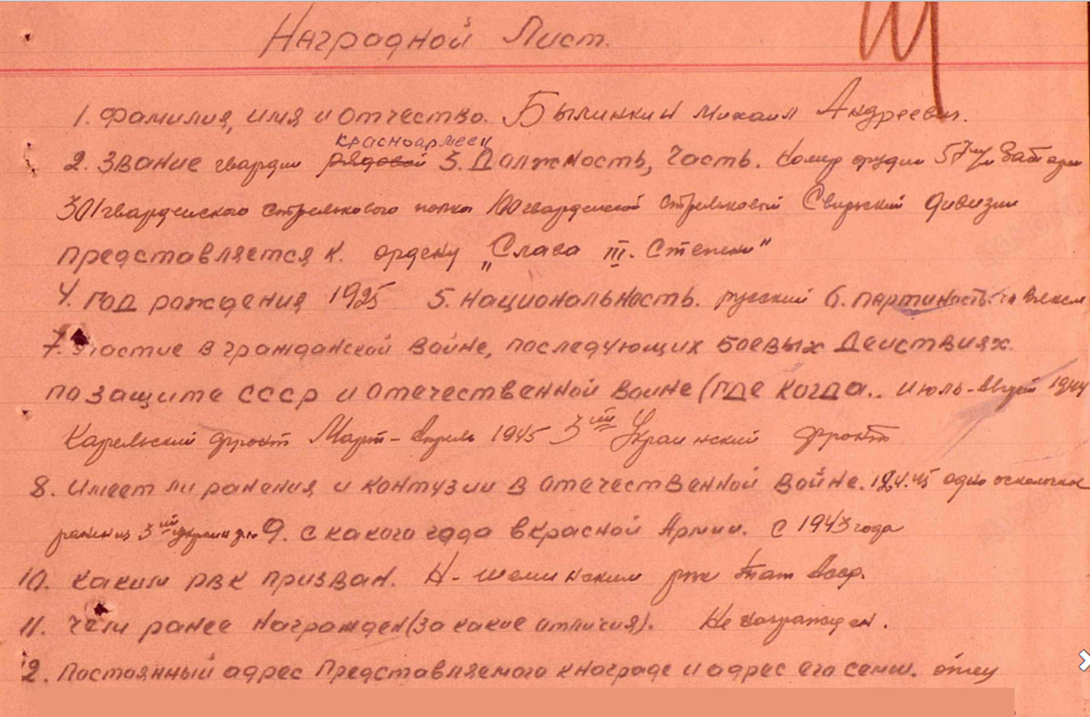 Наградной Лист.
1. Фамилия, имя и отчество. Былинкин Михаил Андреевич.
красноармеец
2. Звание гвардии рядовой 3. Должность, часть. Номер орудия 57 м/м батареи
301 гвардейского стрелкового полка 100 гвардейской стрелковой Свирской дивизии
представляется к. ордену „Слава III. Степени"
4. год рождения 1925 5. национальность. русский 6. партийность. чл влксм
7. Участие в гражданской войне, последующих боевых действиях
по защите СССР и отечественной войне (где когда.. июль-август 1944
Карельский фронт Март-апрель 1945 3ий Украинский фронт
8. Имеет ли ранения и контузии в отечественной войне. одно осколочное
3ий 9. с какого года в красной Армии. с 1943 года
10. каким рвк призван. Н-шешминским рвк
11. чем ранее награжден (за какие отличия). Не награжден.
12. Постоянный адрес представляемого к награде и адрес его семьи. отец